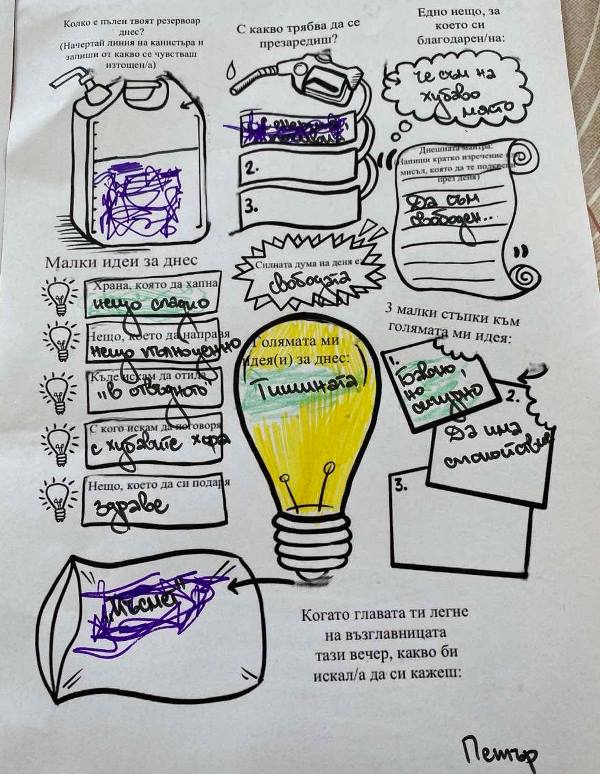 Колко е пълен твоят резервоар
днес?
(Начертай линия на канистърa и
запиши от какво се чувстваш
изтощен/а)
С какво трябва да се
презаредиш?
2.
3.
Едно нещо, за
което си
благодарен/на:
че съм на
хубаво
място
Днешната мантра:
(Напиши кратко изречение или
мисъл, която да те подкрепи
през деня)
Да съм
свободен..
Силната дума на деня е:
свободата
Малки идеи за днес
Храна, която да хапна
нещо сладко
Нещо, което да направя
нещо пълноценно
Къде искам да отида
„в отвъдното"
С кого искам да поговоря
с хубавите хора
Нещо, което да си подаря
здраве
Голямата ми
идея(и) за днес:
Тишината
3 малки стъпки към
голямата ми идея:
1.
Бавно,
но
сигурно
2.
Да има
спокойствие
3.
„Късмет"
Когато главата ти легне
на възглавницата
тази вечер, какво би
искал/а да си кажеш:
Петър